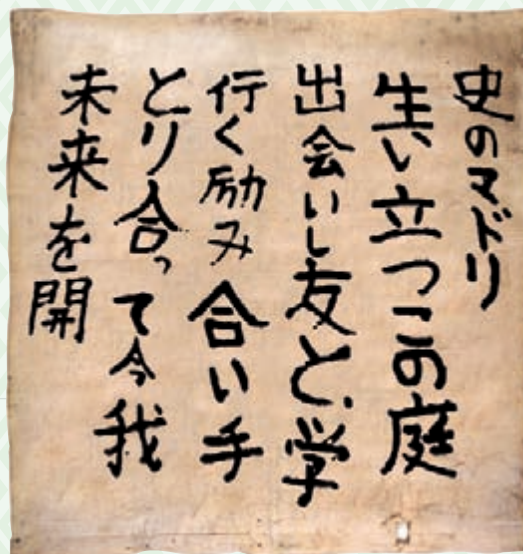 史のマドリ
生い立つこの庭
出会いし友と学
行く励み合い手
とり合って今我
未来を開